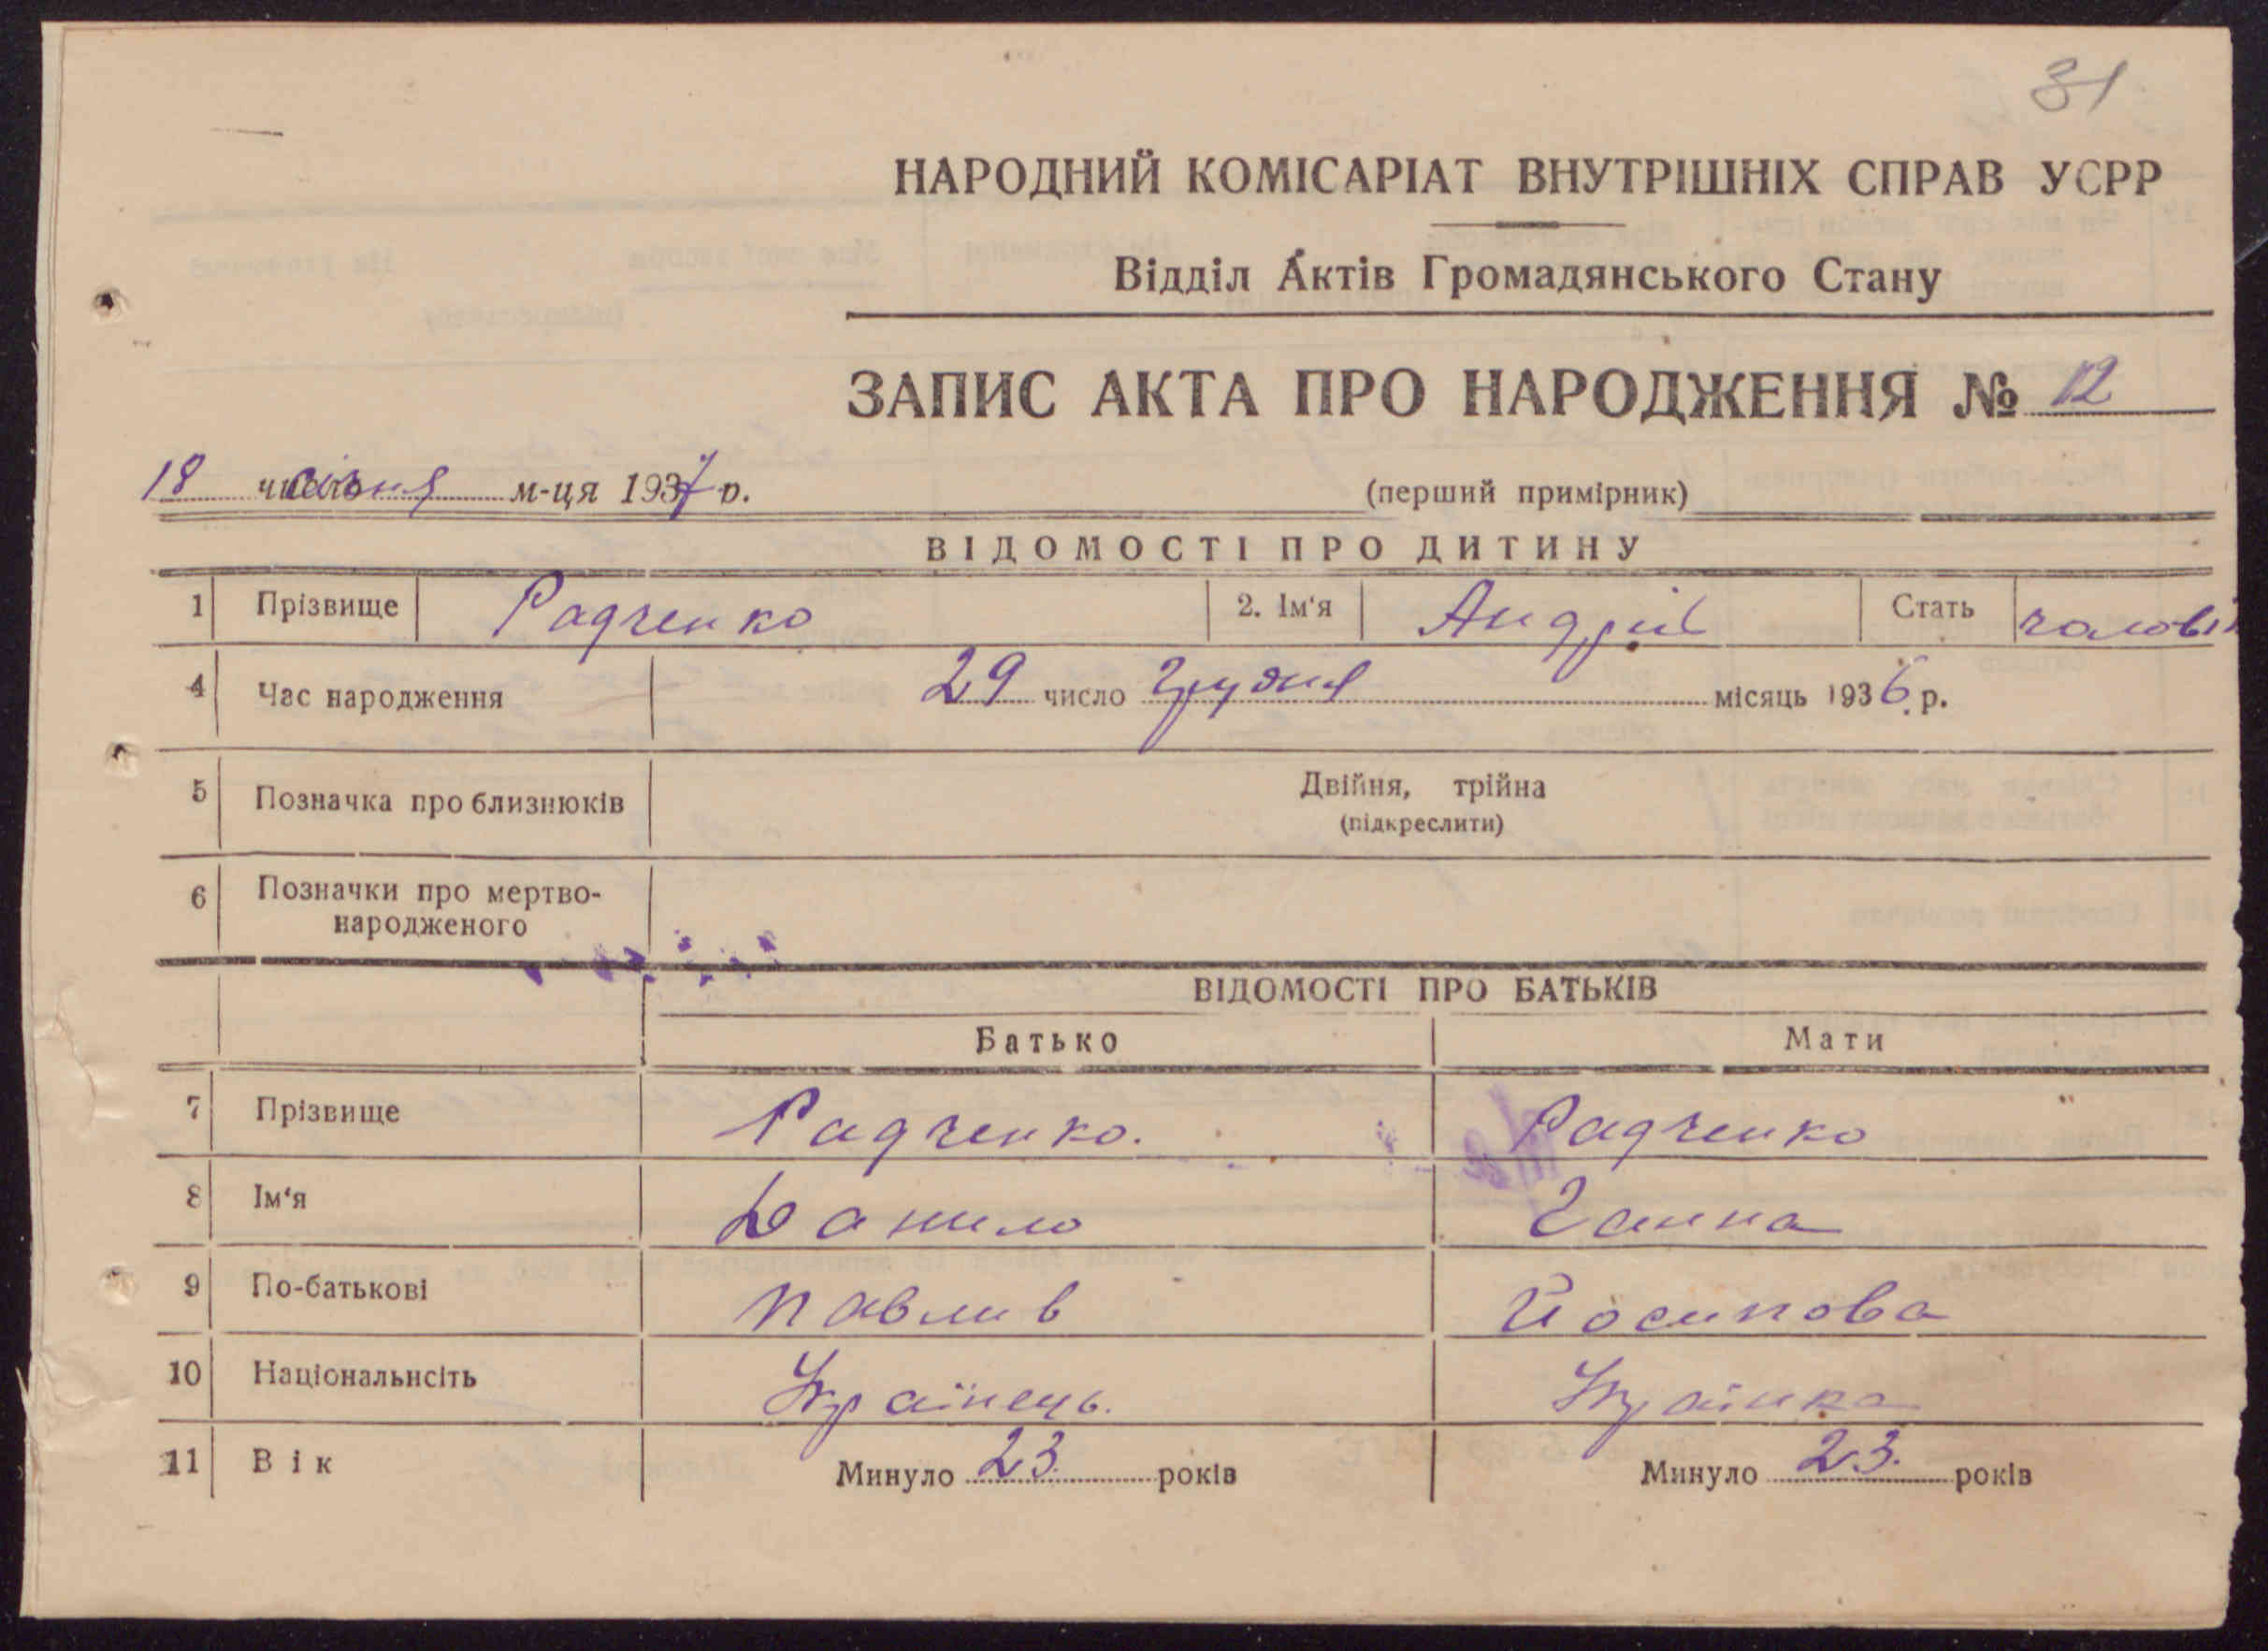 31
НАРОДНИЙ КОМІСАРІАТ ВНУТРІШНІХ СПРАВ УСРР
Відділ Актів Громадянського Стану
ЗАПИС АКТА ПРО НАРОДЖЕННЯ № 12
18 число січня м-ця 1937 р. (перший примірник)
ВІДОМОСТІ ПРО ДИТИНУ
1 Прізвище Радченко 2. Ім'я Андрій Стать чоловік
4 Час народження 29 число Грудня місяць 1936 р.
5 Позначка про близнюків Двійня, трійна
(підкреслити)
6 Позначки про мертво-
народженого
ВІДОМОСТІ ПРО БАТЬКІВ
Батько Мати
7 Прізвище Радченко. Радченко
8 Ім'я Данило Ганна
9 По-батькові Павлив Йосипова
10 Національнсіть Українець. Українка
11 Вік Минуло 23 років Минуло 23. років